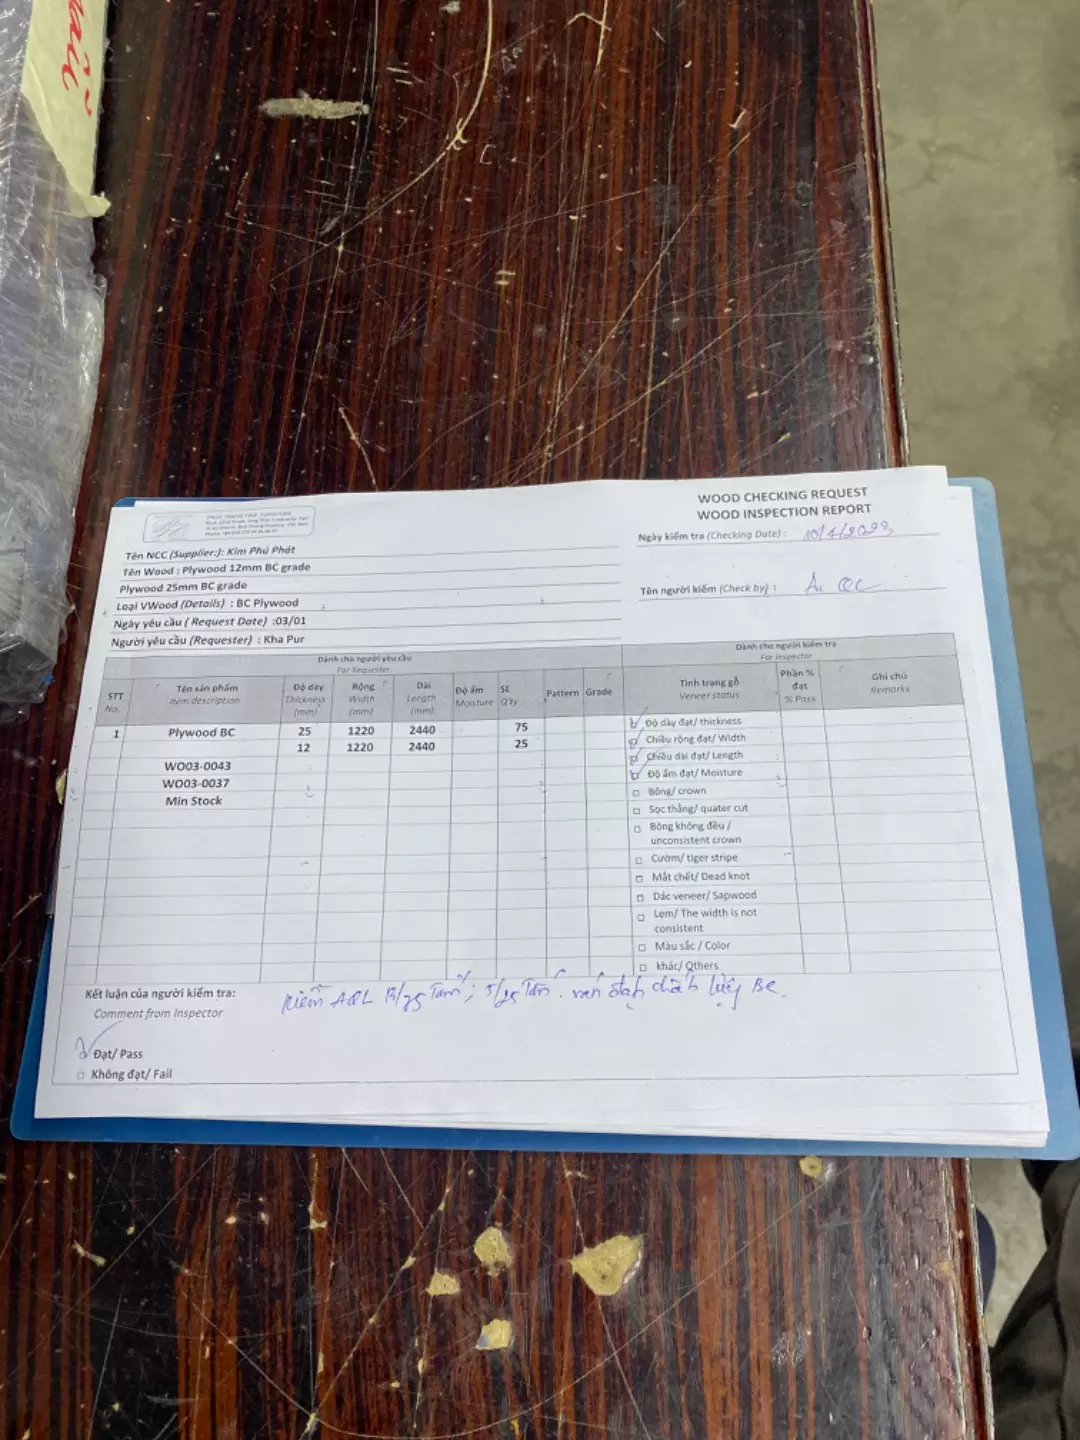 WOOD CHECKING REQUEST
WOOD INSPECTION REPORT
Ngày kiểm tra (Checking Date) : 10/4/2023
Tên người kiểm (Check by) : Âu QC
Tên NCC (Supplier:): Kim Phú Phát
Tên Wood : Plywood 12mm BC grade
Plywood 25mm BC grade
Loại VWood (Details) : BC Plywood
Ngày yêu cầu ( Request Date) :03/01
Người yêu cầu (Requester) : Kha Pur
Dành cho người yêu cầu
For Requester
Dành cho người kiểm tra
For inspector
STT No. Tên sản phẩm Item description Độ dày Thickness (mm) Rộng Width (mm) Dài Length (mm) Độ ẩm Moisture SL Q'ty Pattern Grade Tình trạng gỗ Veneer status Phần % đạt % Pass Ghi chú Remarks
1 Plywood BC 25 1220 2440 75 Độ dày đạt/ thickness
12 1220 2440 25 Chiều rộng đạt/ Width
WO03-0043 Chiều dài đạt/ Length
WO03-0037 Độ ẩm đạt/ Moisture
Min Stock Bông/ crown
Sọc thẳng/ quater cut
Bông không đều /
unconsistent crown
Cườm/ tiger stripe
Mắt chết/ Dead knot
Dác veneer/ Sapwood
Lẹm/ The width is not
consistent
Màu sắc / Color
khác/ Others
Kết luận của người kiểm tra:
Comment from Inspector
Kiểm AQL 13/75 Tấm; 5/25 Tấm. ván đạt chất lượng BC.
Đạt/ Pass
Không đạt/ Fail